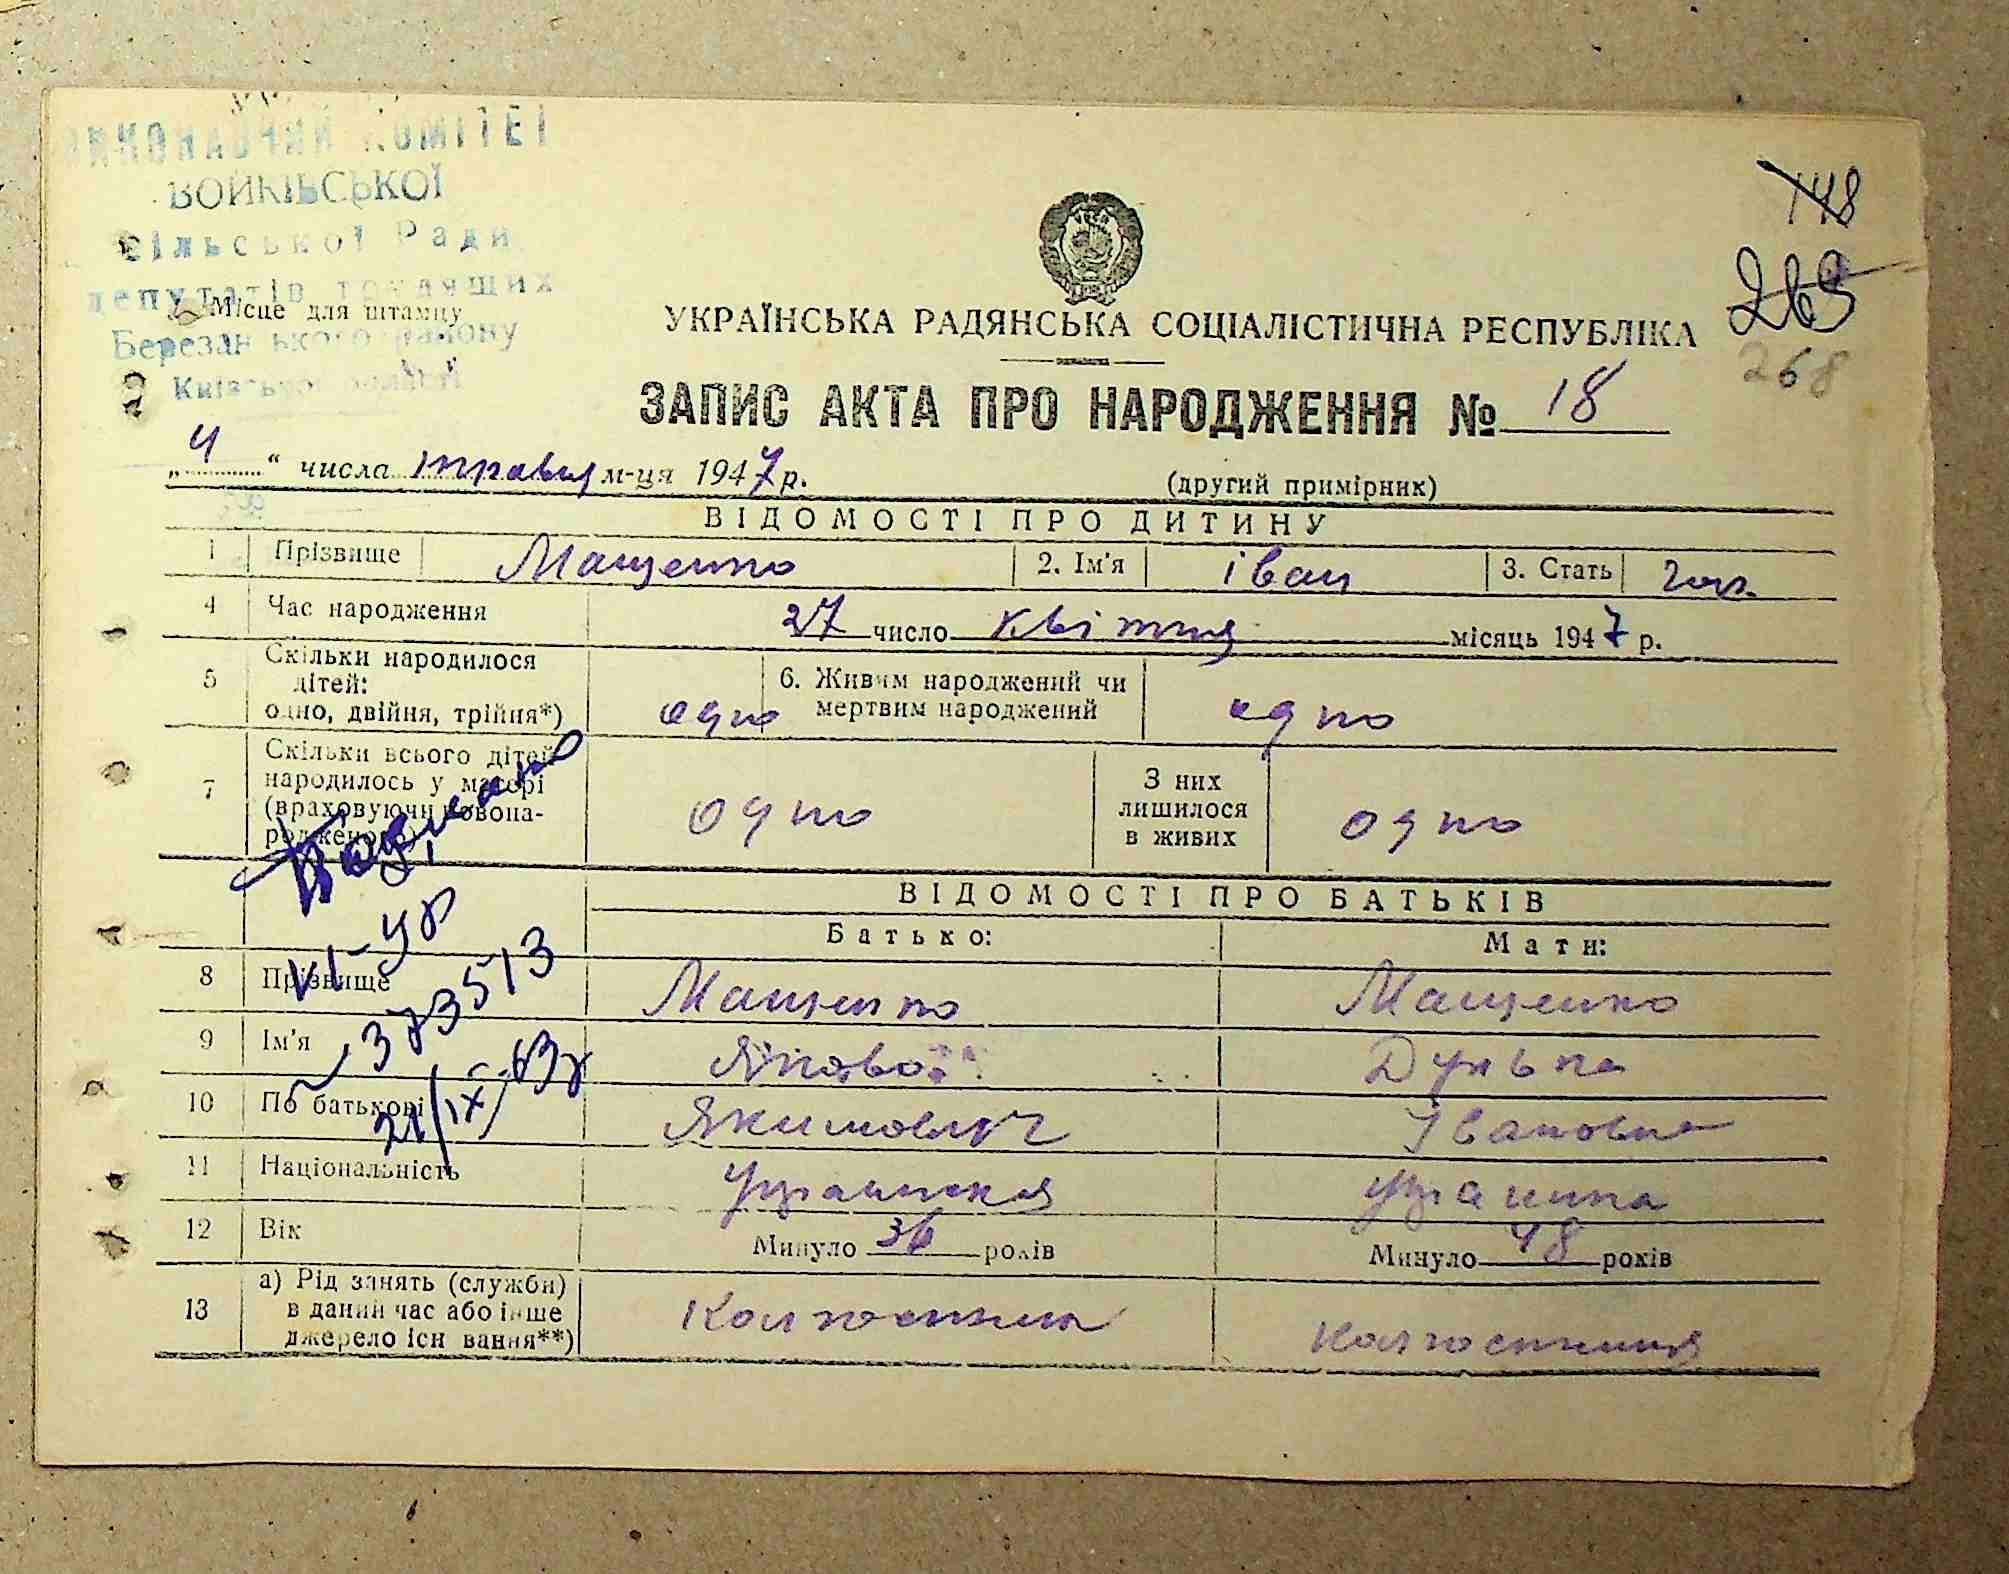 ВИКОНАВЧИЙ КОМІТЕТ
ВОЙКІВСЬКОЇ
Сільської Ради
депутатів трудящих
Місце для штампу
Березанського району
Київської області
148
269
268
УКРАЇНСЬКА РАДЯНСЬКА СОЦІАЛІСТИЧНА РЕСПУБЛІКА
ЗАПИС АКТА ПРО НАРОДЖЕННЯ № 18
„4“ числа травня м-ця 1947 р.
(другий примірник)
ВІДОМОСТІ ПРО ДИТИНУ
1 Прізвище Мащенко 2. Ім'я іван 3. Стать чол.
4 Час народження 27 число квітня місяць 1947 р.
5 Скільки народилося дітей: одно, двійня, трійня*) одно 6. Живим народжений чи мертвим народжений одно
7 Скільки всього дітей народилось у матері (враховуючи новонародженого) одно З них лишилося в живих одно
ВІДОМОСТІ ПРО БАТЬКІВ
Батько: Мати:
8 Прізвище Мащенко Мащенко
9 Ім'я Дунька
10 По батькові Якимович Івановна
11 Національність
12 Вік Минуло 36 років Минуло 48 років
13 а) Рід занять (служби) в даний час або інше джерело існування**) Колгоспник колгоспниця
VI-УР
373513
21/IX-63р